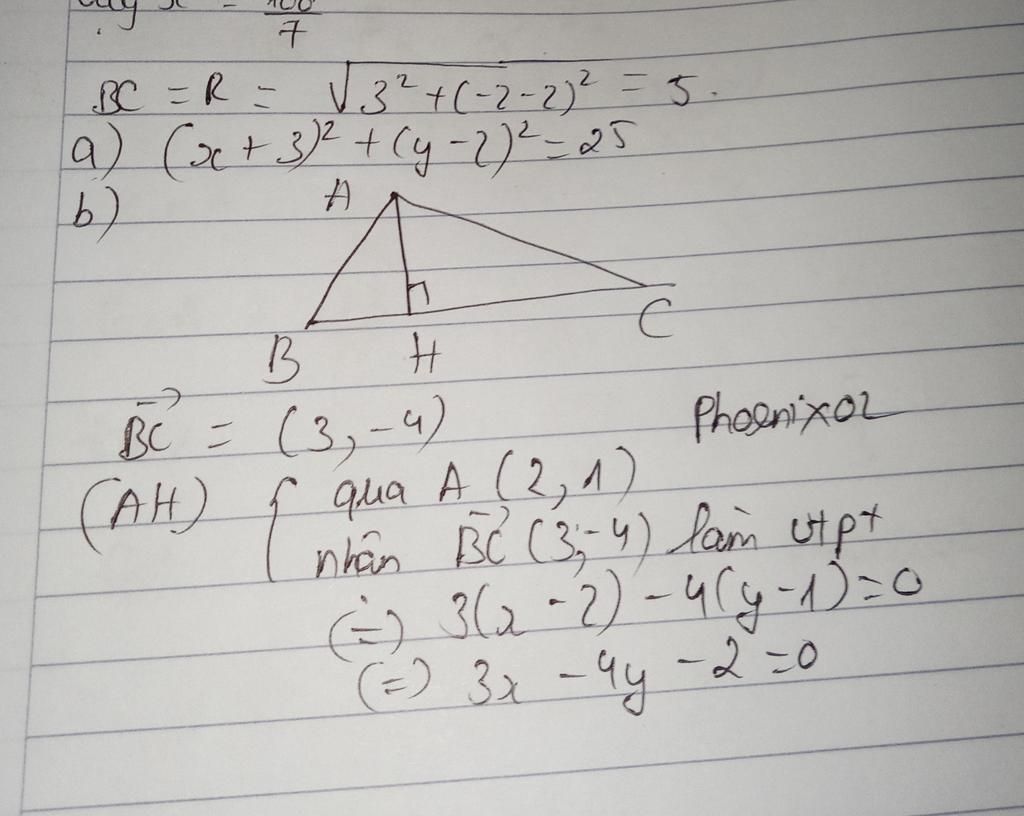 100
7
BC = R = √3² + (-2-2)² = 5.
a) (x + 3)² + (y - 2)² = 25
b)
A
B H C
BC→ = (3, -4)
Phoenix02
(AH) { qua A (2, 1)
nhân BC→ (3, -4) làm vtpt
(=) 3(x - 2) - 4(y - 1) = 0
(=) 3x - 4y - 2 = 0